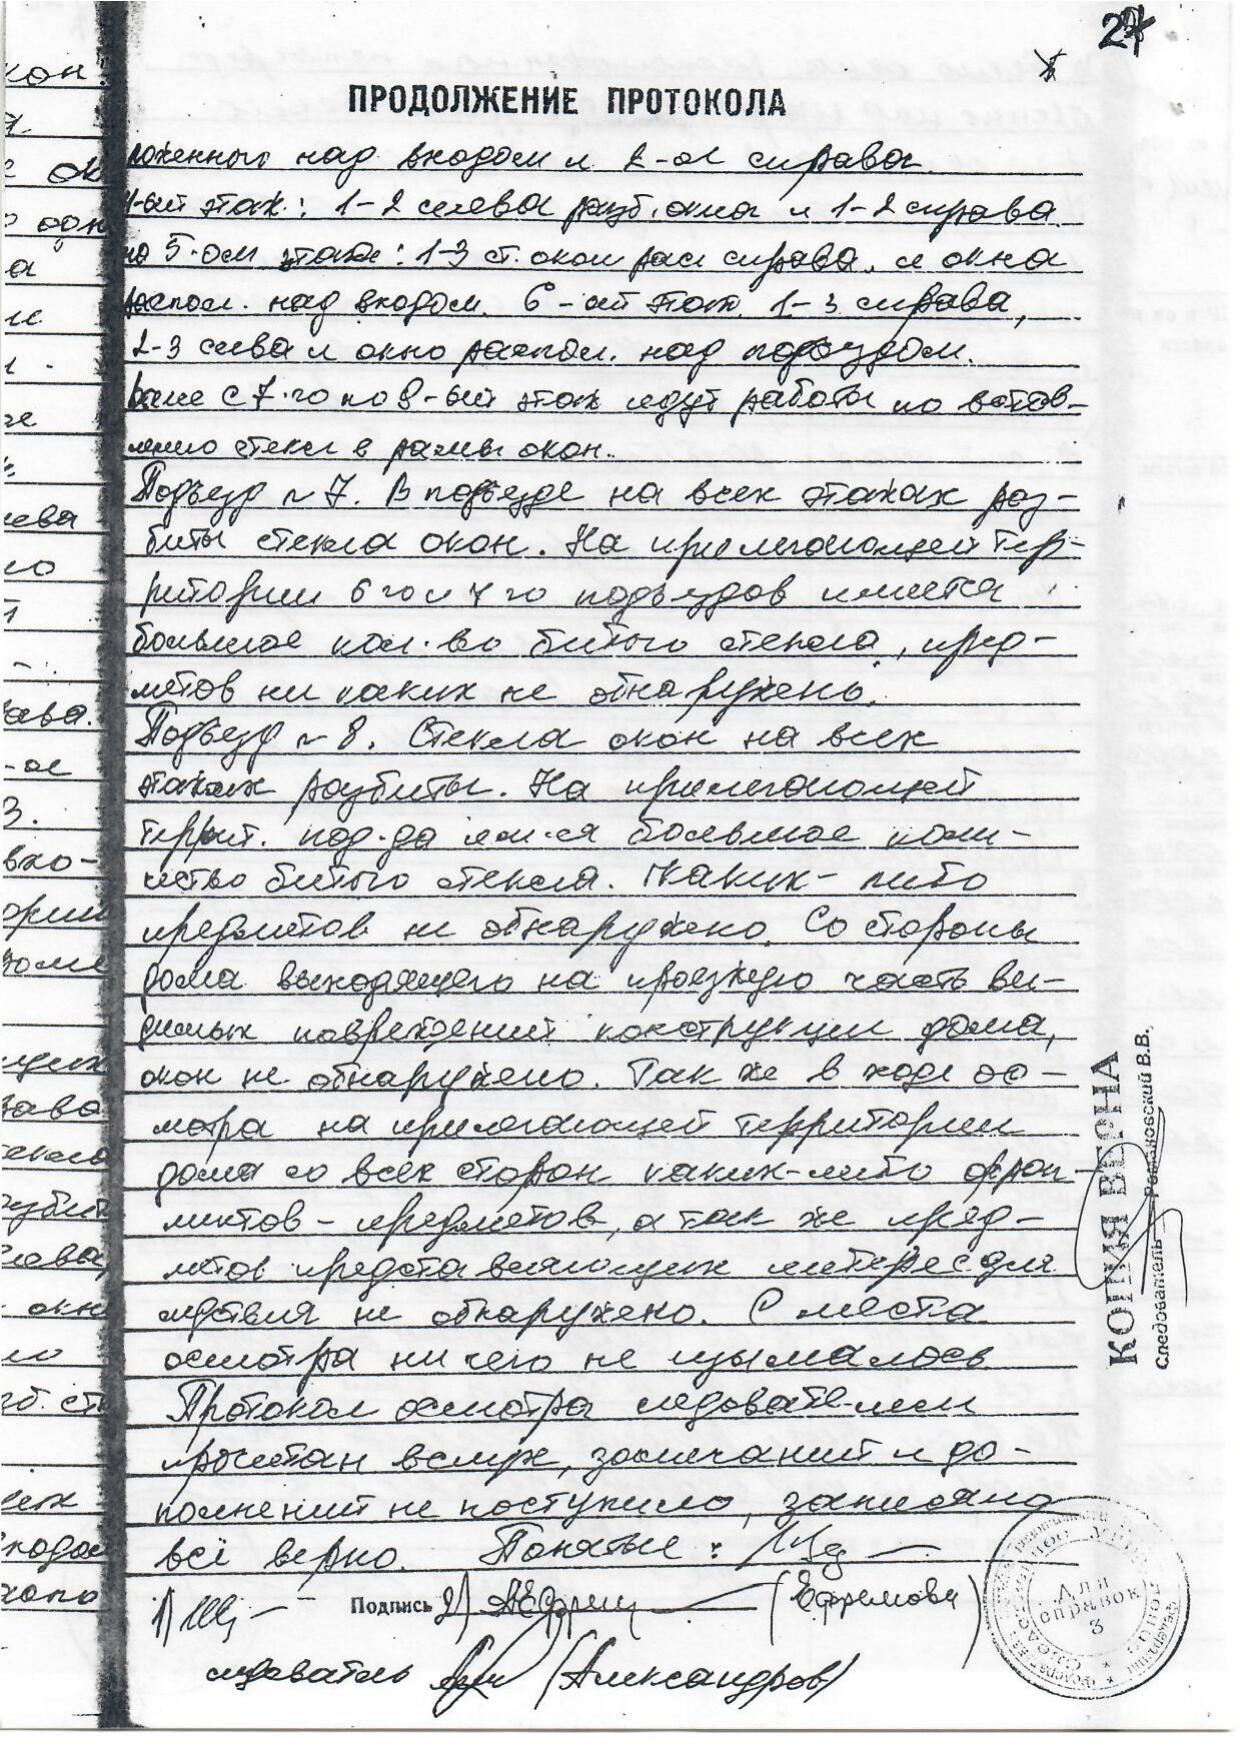 27
ПРОДОЛЖЕНИЕ ПРОТОКОЛА
ложенного над входом и 2-ое справа.
этаж: 1-2 слева разб. окна и 1-2 справа
на 5-ом этаже: 1-3 ст. окон рас справа, и окна
распол. над входом. 6-ый этаж 1-3 справа,
2-3 слева и окно распол. над подъездом.
Выше с 7-го по 9-ый этаж идут работы по встав-
лению стекл в рамы окон.
Подъезд № 7. В подъезде на всех этажах раз-
биты стекла окон. На прилегающей тер-
ритории 6 го и 7 го подъездов имеется
большое кол-во битого стекла, пред-
метов ни каких не обнаружено.
Подъезд № 8. Стекла окон на всех
этажах разбиты. На прилегающей
террит. под-да им-ся большое коли-
чество битого стекла. Каких-либо
предметов не обнаружено. Со стороны
дома выходящего на проезжую часть ви-
димых повреждений конструкции дома,
окон не обнаружено. Так же в ходе ос-
мотра на прилегающей территории
дома со всех сторон каких-либо фраг-
ментов - предметов, а так же пред-
метов представляющих интерес для
следствия не обнаружено. С места
осмотра ни чего не изымалось
Протокол осмотра следователем
прочитан вслух, замечаний и до-
полнений не поступило, записано
всё верно. Понятые:
1) Подпись 2) (Ефремова)
следователь (Александров)
КОПИЯ ВЕРНА
Следователь В.В.
Для
справок
3